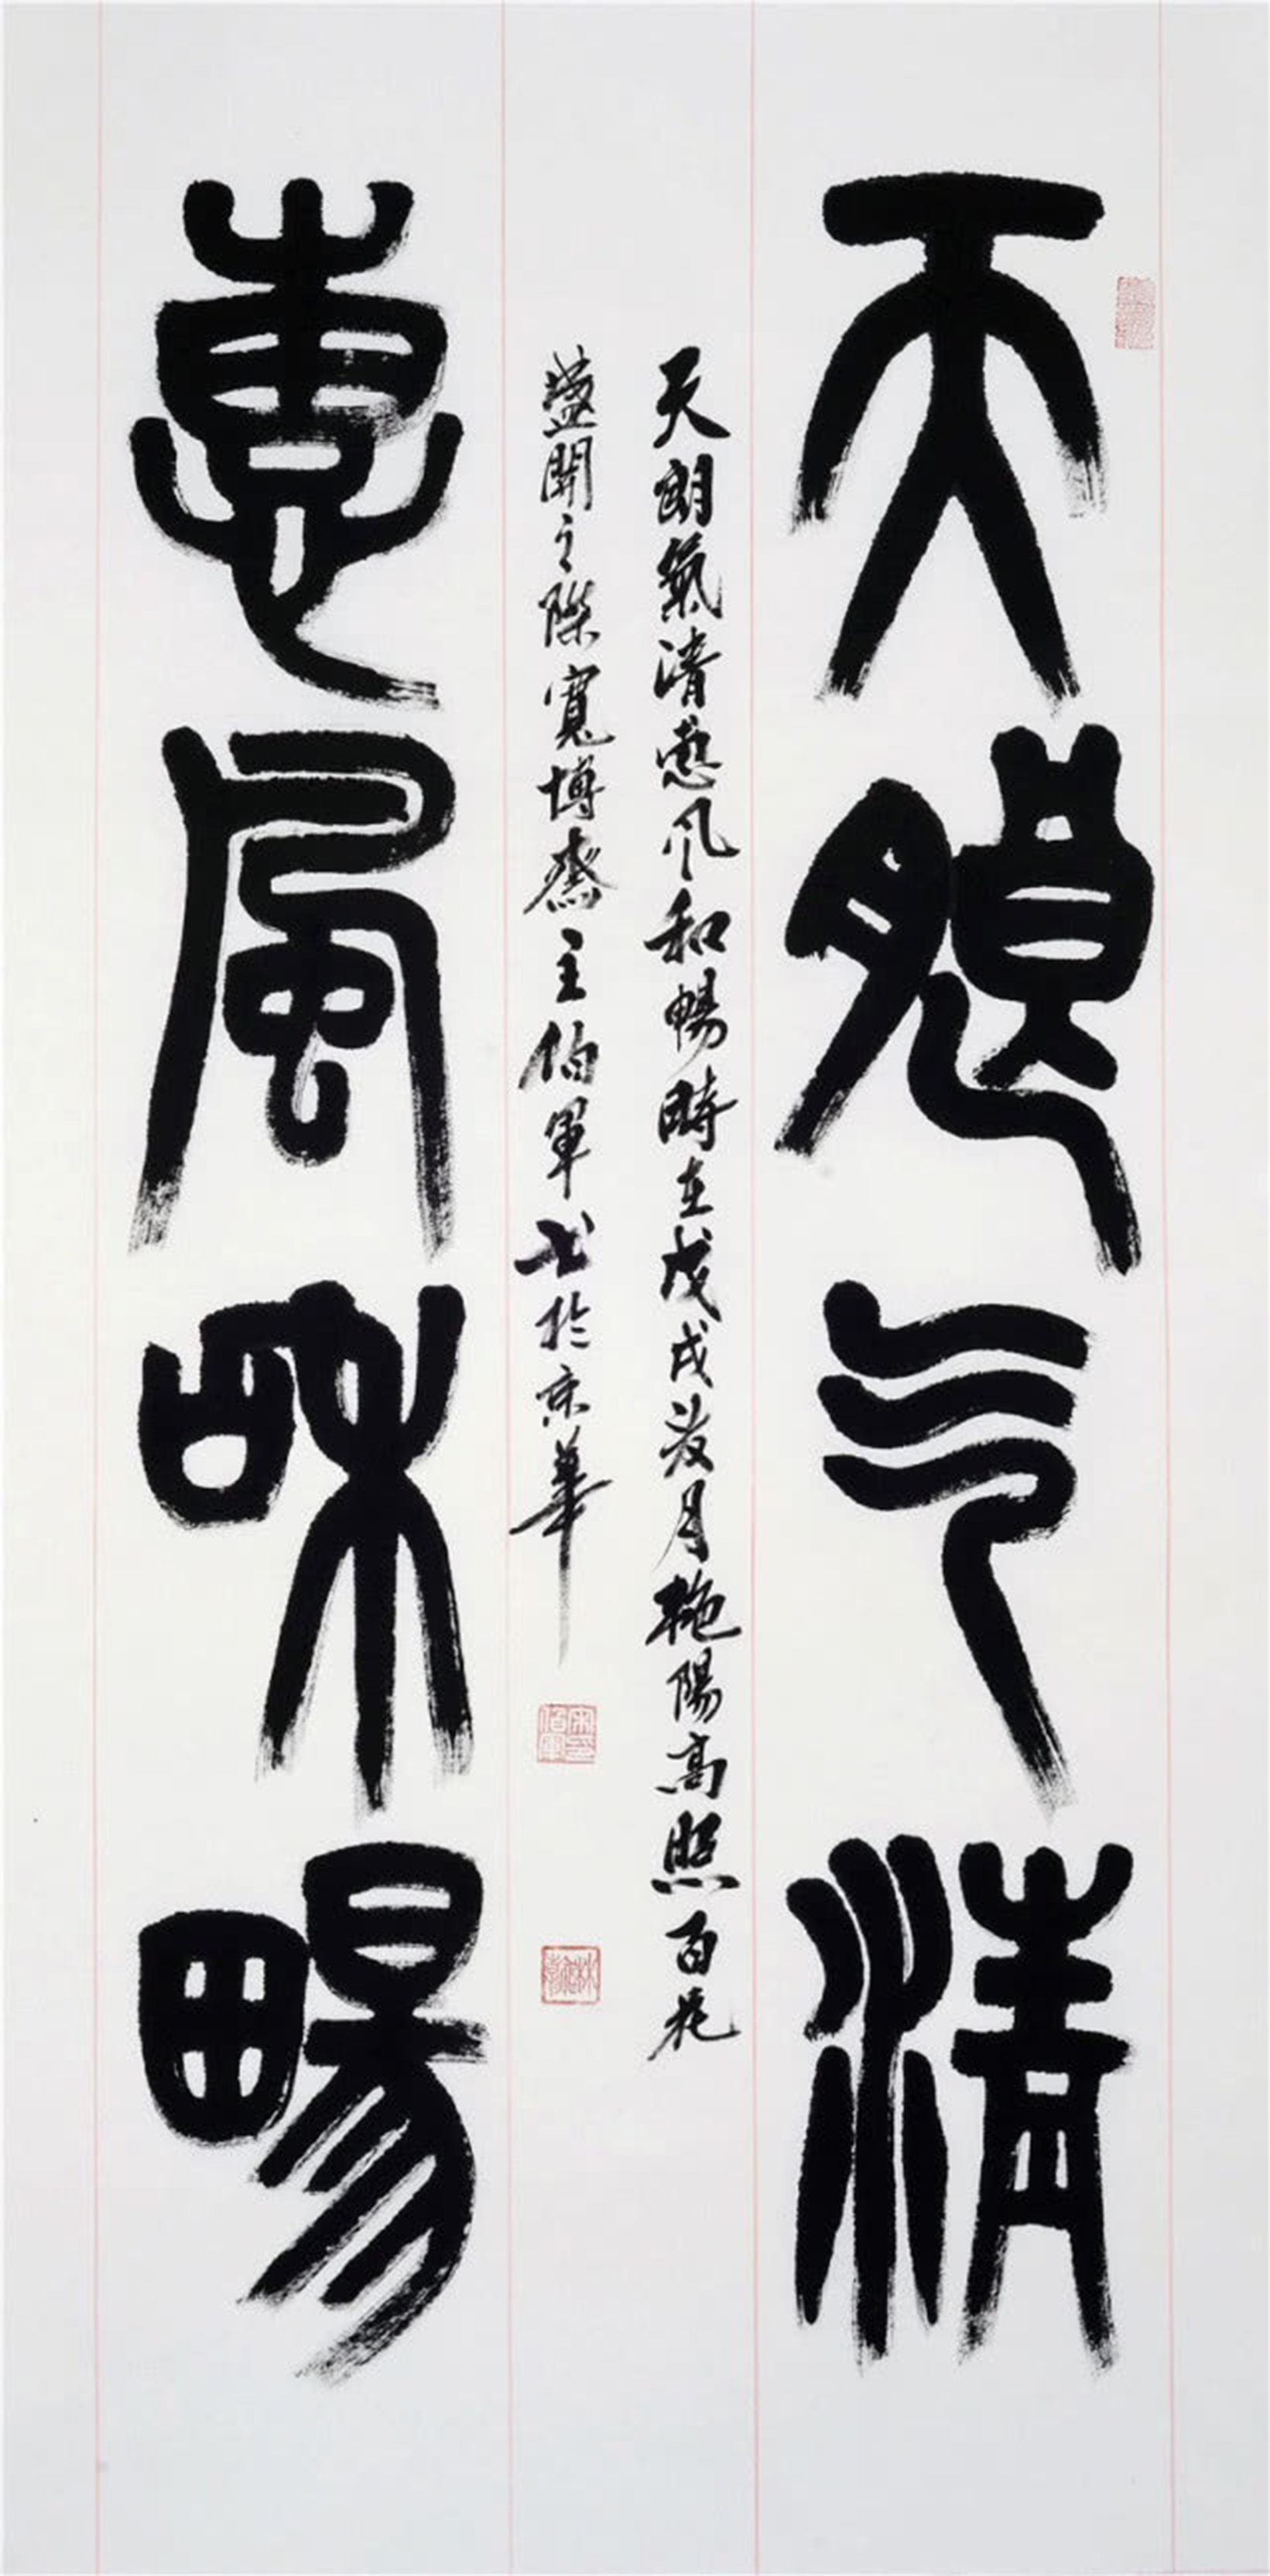 天朗气清
天朗氣清惠风和暢時在戊戌後月艳陽高照百花
盛開之際寬博齋主伯軍书於京華
惠風咊暢
宋伯軍印